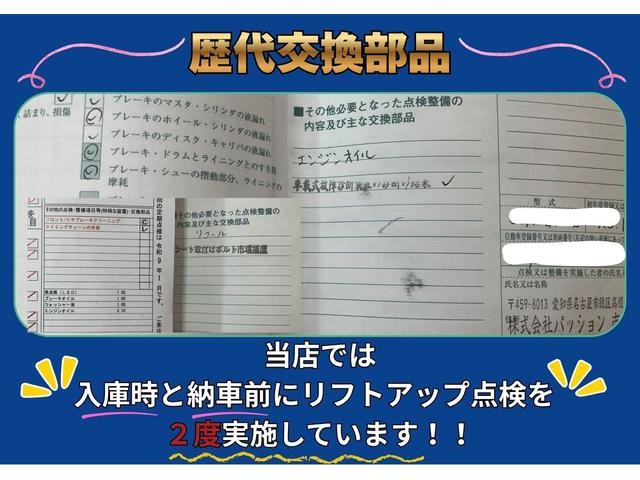 歴代交換部品
詰まり、損傷
ブレーキのマスタ・シリンダの液漏れ
ブレーキのホイール・シリンダの液漏れ
ブレーキのディスク・キャリパの液漏れ
ブレーキ・ドラムとライニングとのすき間
ブレーキ・シューの摺動部分、ライニングの
摩耗
■その他必要となった点検整備の
内容及び主な交換部品
エンジンオイル
型式
自動車登録番号又は車両番号
点検又は整備を実施した者の氏名
氏名又は名称
〒459-8013 愛知県名古屋市緑区高根
株式会社パッション
その他の点検・整備項目等(特殊な装置)・交換部品
フロント/リヤブレーキクリーニング C
タイミングチェーンの状態 レ
発炎筒(LED) 1.00
ブレーキオイル 1.00
ウォッシャー液 1.00
エンジンオイル 3.10
回の定期点検は 令和 9年 1月です。
その他必要となった点検整備の
内容及び主な交換部品
リコール
シート取付けボルト市場措置
当店では
入庫時と納車前にリフトアップ点検を
２度実施しています！！